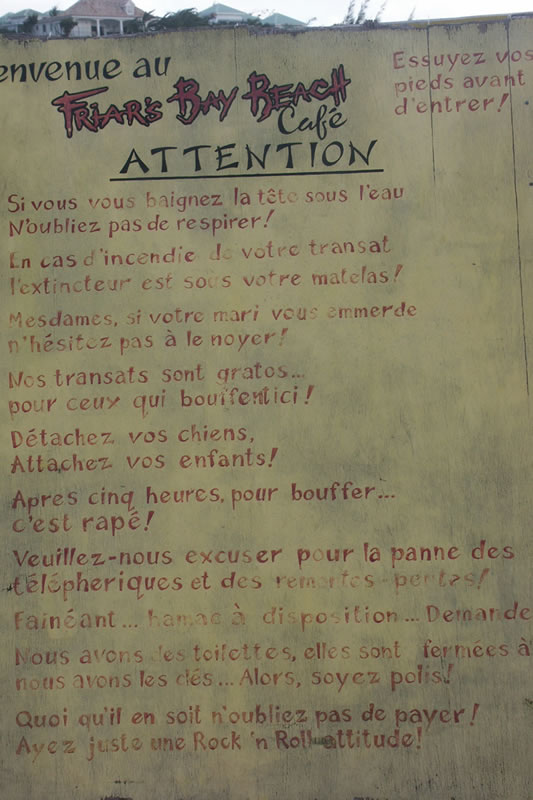 envenue au
FRIAR'S BAY BEACH
Café
Essuyez vos
pieds avant
d'entrer!
ATTENTION
Si vous vous baignez la tête sous l'eau
N'oubliez pas de respirer!
En cas d'incendie de votre transat
l'extincteur est sous votre matelas!
Mesdames, si votre mari vous emmerde
n'hésitez pas à le noyer!
Nos transats sont gratos...
pour ceux qui bouffent ici!
Détachez vos chiens,
Attachez vos enfants!
Apres cinq heures, pour bouffer...
c'est rapé!
Veuillez-nous excuser pour la panne des
télépheriques et des remontes-pentes!
Fainéant... hamac à disposition... Demande
Nous avons des toilettes, elles sont fermées à
nous avons les clés... Alors, soyez polis!
Quoi qu'il en soit n'oubliez pas de payer!
Ayez juste une Rock 'n Roll attitude!